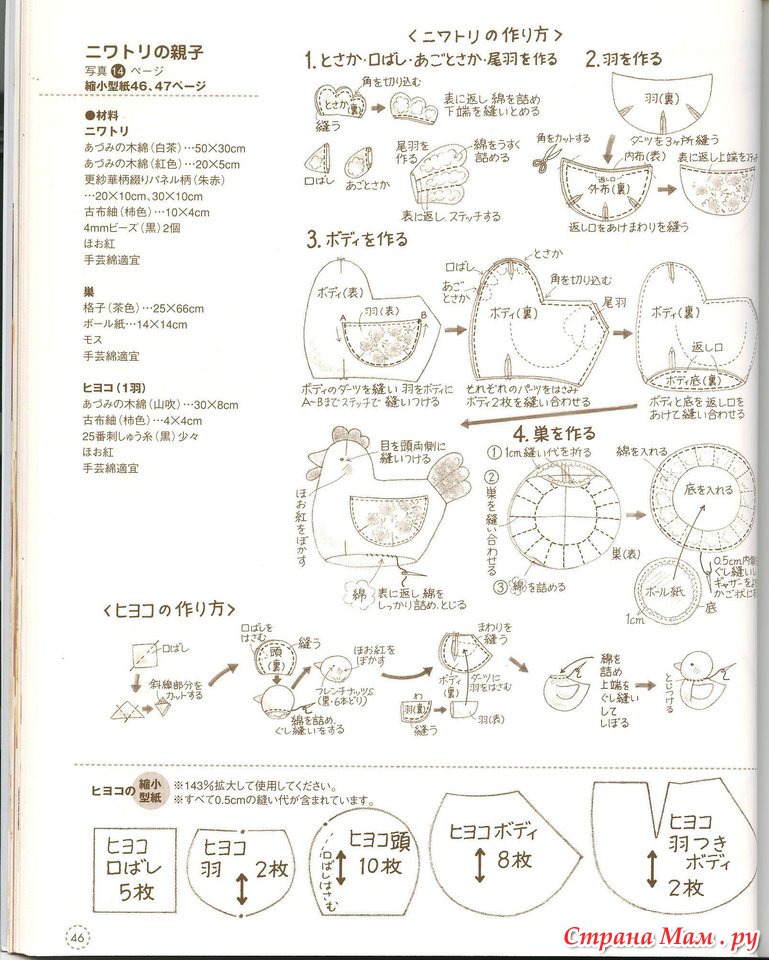 ニワトリの親子
写真14ページ
縮小型紙46、47ページ
●材料
ニワトリ
あづみの木綿(白茶)…50×30cm
あづみの木綿(紅色)…20×5cm
更紗華柄綴りパネル柄(朱赤)
…20×10cm、30×10cm
古布紬(柿色)…10×4cm
4mmビーズ(黒)2個
ほお紅
手芸綿適宜
巣
格子(茶色)…25×66cm
ボール紙…14×14cm
モス
手芸綿適宜
ヒヨコ(1羽)
あづみの木綿(山吹)…30×8cm
古布紬(柿色)…4×4cm
25番刺しゅう糸(黒)少々
ほお紅
手芸綿適宜
〈ニワトリの作り方〉
1.とさか・口ばし・あごとさか・尾羽を作る
角を切り込む
とさか(裏)
縫う
表に返し 綿を詰め
下端を縫いとめる
口ばし
あごとさか
尾羽を
作る
綿をうすく
詰める
表に返し、ステッチする
2.羽を作る
羽(裏)
ダーツを3ヶ所縫う
角をカットする
内布(表)
返し口
外布(裏)
返し口をあけまわりを縫う
表に返し上端をステッ
3.ボディを作る
ボディ(表)
羽(表)
A
B
ボディのダーツを縫い 羽をボディに
A~Bまでステッチで縫いつける
口ばし
とさか
あご
とさか
角を切り込む
尾羽
ボディ(裏)
それぞれのパーツをはさみ
ボディ2枚を縫い合わせる
ボディ(裏)
返し口
ボディ底(裏)
ボディと底を返し口を
あけて縫い合わせる
目を頭両側に
縫いつける
ほお紅をぼかす
綿
表に返し 綿を
しっかり詰め、とじる
4.巣を作る
①1cm縫い代を折る
②巣を縫い合わせる
巣(表)
③綿を詰める
綿を入れる
底を入れる
0.5cm内側
ぐし縫いし
ギャザーをよ
かご状に
ボール紙
1cm
底
〈ヒヨコの作り方〉
口ばし
斜線部分を
カットする
口ばしを
はさむ
頭(裏)
縫う
綿を詰め、
ぐし縫いをする
ほお紅を
ぼかす
フレンチナッツS
(黒・6本どり)
まわりを
縫う
ボディ(裏)
ダーツに
羽をはさむ
わ
羽(裏)
縫う
羽(表)
綿を
詰め
上端を
ぐし縫い
して
しぼる
とじつける
ヒヨコの縮小型紙
※143%拡大して使用してください。
※すべて0.5cmの縫い代が含まれています。
ヒヨコ
口ばし
5枚
ヒヨコ
羽 2枚
ヒヨコ頭
10枚
口ばしはさむ
ヒヨコボディ
8枚
ヒヨコ
羽つき
ボディ
2枚
46
Страна Мам.ру